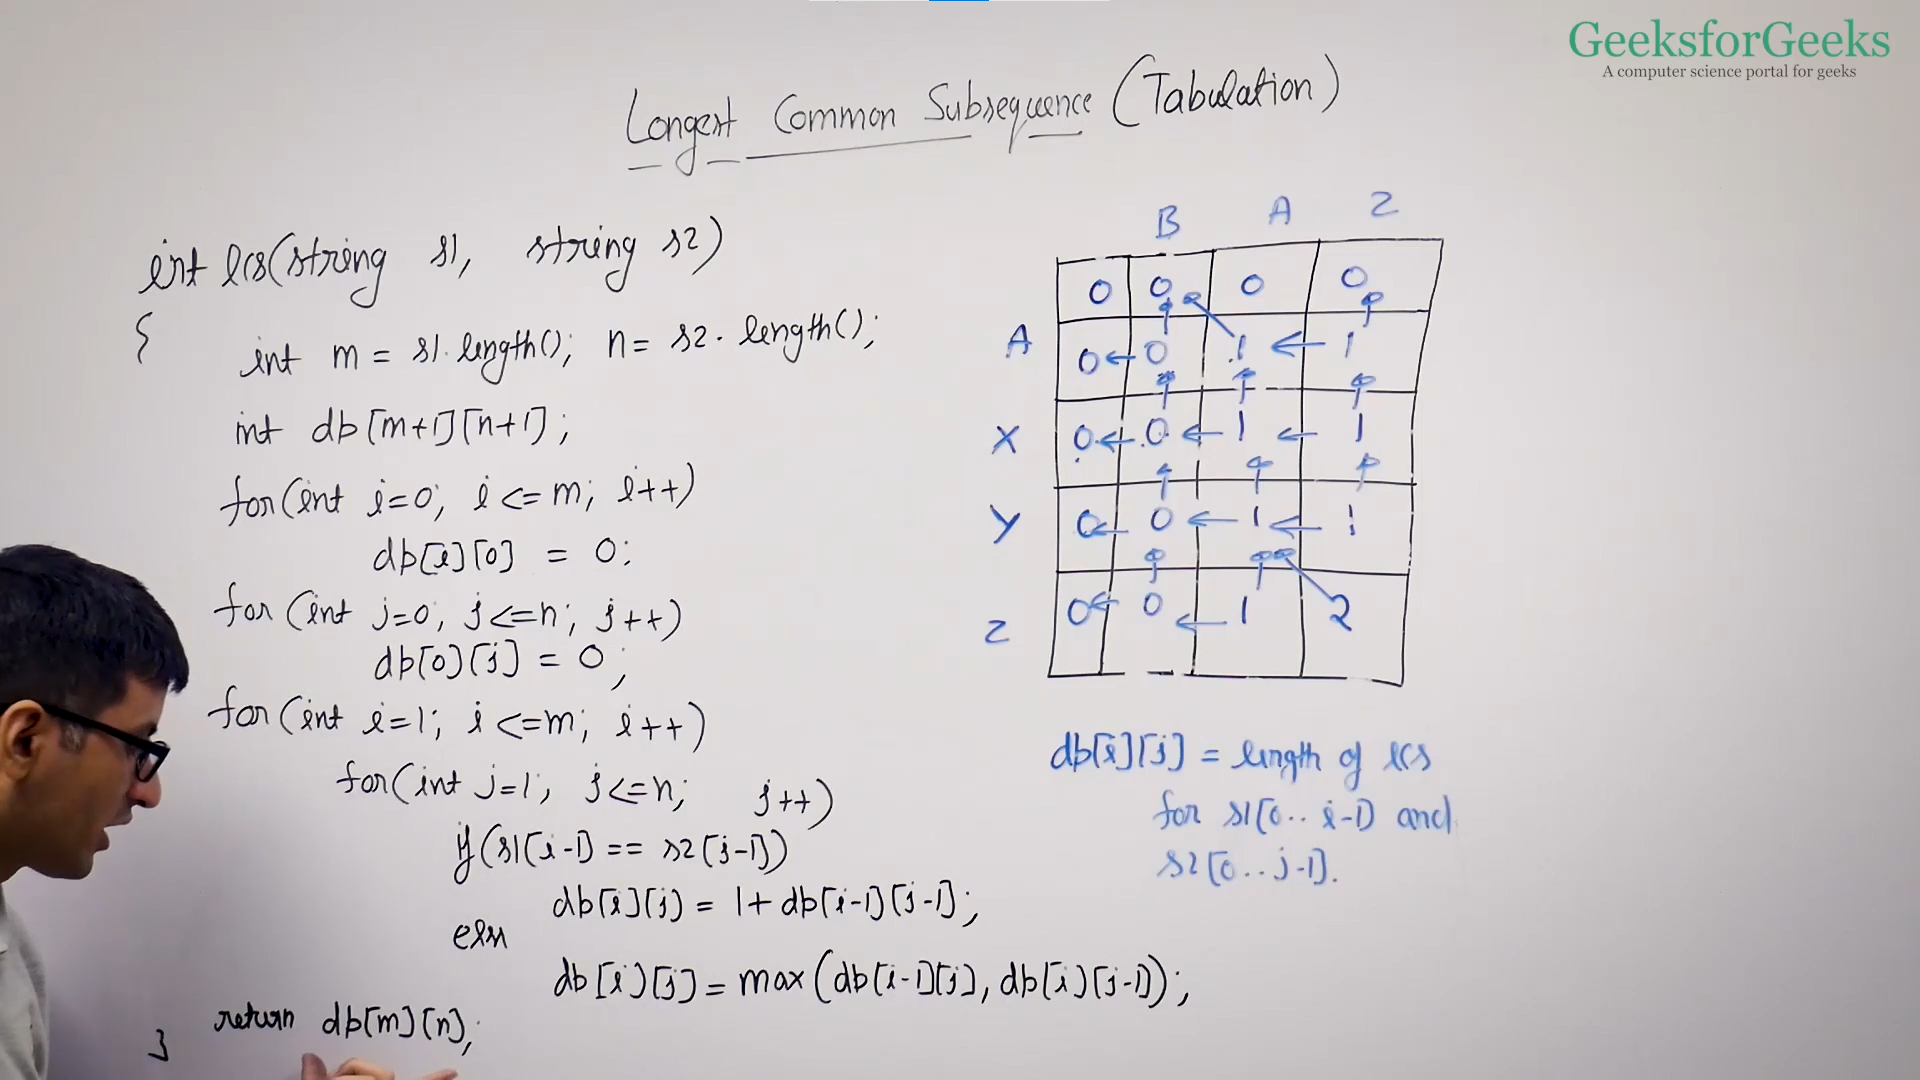 GeeksforGeeks
A computer science portal for geeks
Longest Common Subsequence (Tabulation)
int lcs(string s1, string s2)
{
int m = s1.length(); n = s2.length();
int db[m+1][n+1];
for(int i=0; i<=m; i++)
db[i][0] = 0;
for(int j=0; j<=n; j++)
db[0][j] = 0;
for(int i=1; i<=m; i++)
for(int j=1; j<=n; j++)
if(s1[i-1] == s2[j-1])
db[i][j] = 1+db[i-1][j-1];
else
db[i][j] = max(db[i-1][j], db[i][j-1]);
return db[m][n];
}
B A Z
0 0 0 0
A 0 ← 0 1 ← 1
X 0 ← 0 ← 1 ← 1
Y 0 ← 0 ← 1 ← 1
Z 0 ← 0 ← 1 2
db[i][j] = length of lcs
for s1[0..i-1] and
s2[0..j-1].